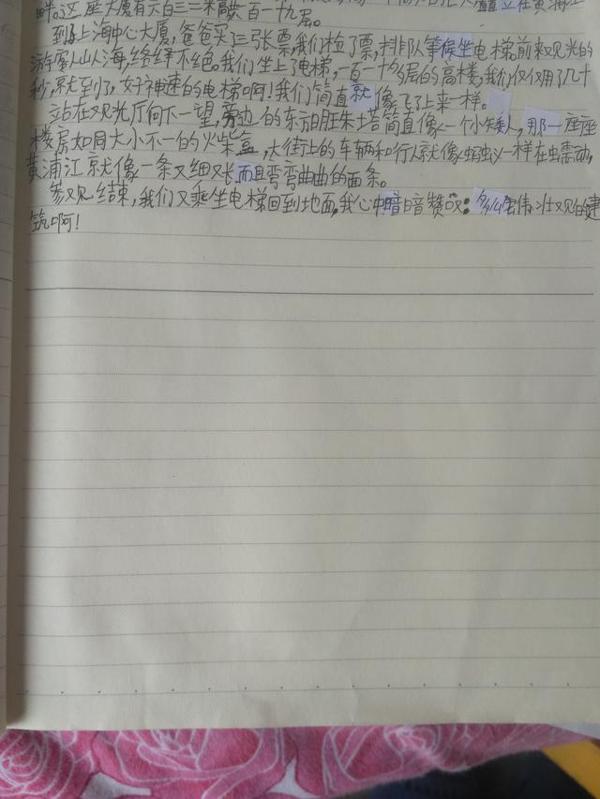 畔。这座大厦有六百三十二米高共一百一十九层。
到了上海中心大厦,爸爸买了三张票,我们检了票,排队等候坐电梯。前来观光的
游客人山人海,络绎不绝。我们坐上了电梯,一百一十多层的高楼,我们仅仅用了几十
秒,就到了,好神速的电梯啊!我们简直就像飞了上来一样。
站在观光厅向下一望,旁边的东方明珠塔简直像一个小矮人,那一座座
楼房如同大小不一的火柴盒,大街上的车辆和行人就像蚂蚁一样在蠕动,
黄浦江就像一条又细又长而且弯弯曲曲的面条。
参观结束,我们又乘坐电梯回到地面,我心中暗暗赞叹:多么雄伟壮观的建
筑啊!